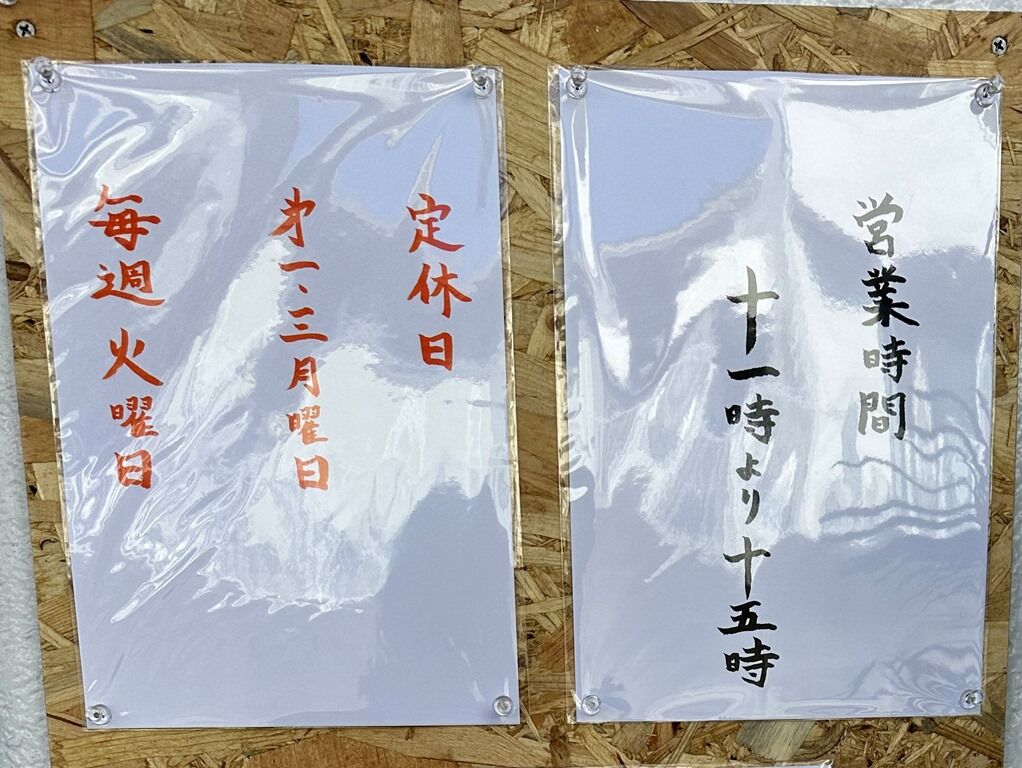 営業時間
十一時より十五時
定休日
㐧一、三月曜日
毎週火曜日